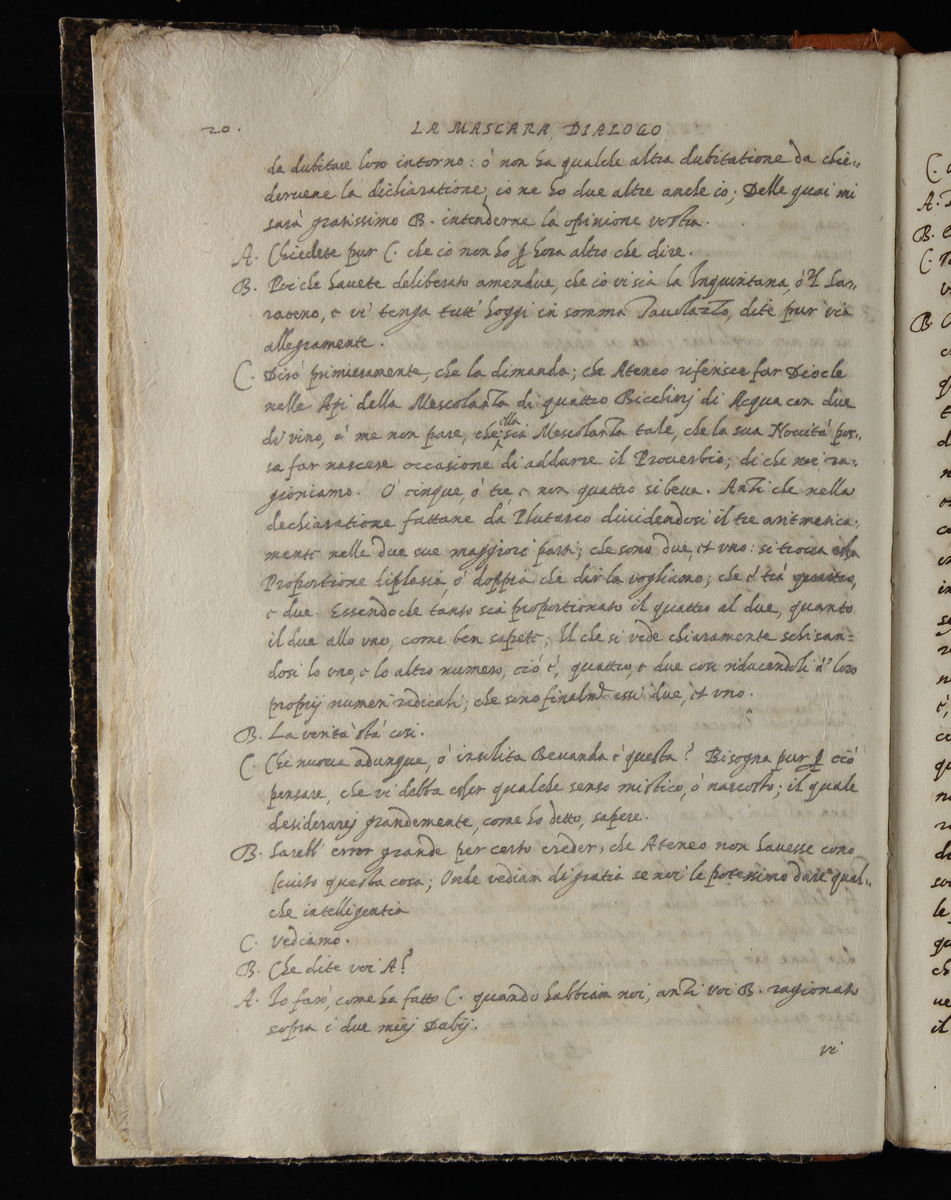 20.
LA MASCARA, DIALOGO
da dubitare loro intorno: ò non ha qualche altra dubitatione da chie-
dervene la dichiaratione; io ne ho due altre anche io; Delle quai mi
sarà gratissimo B. intenderne la opinione vostra.
A. Chiedete pur C. che iò non ho ꝑ hora altro che dire.
B. Poi che havete deliberato amendue, che iò vi sia la Inquintana, ò'l Sar-
raceno, e vi tenga tutt' hoggi in somma Tavolazzo, dite pur via
allegramente.
C. Dirò primieramente, che la dimanda; che Ateneo riferisce far Diocle
nelle Api della Mescolanza di quattro Bicchierj di Acqua con due
di vino, à me non pare, che illa sia Mescolanza tale, che la sua Novità pos-
sa far nascere occasione di addurre il Proverbio; di che noi ra-
gioniamo. O' cinque, ò tre, e non quattro si beva. Anzi che nella
dechiaratione fattane da Plutarco dividendosi il tre aritmetica-
mente nelle due sue maggiori parti; che sono due, et uno: si trova essa
Proportione diplasia, ò doppia che dir la vogliamo; che è trà quattro,
e due. Essendo che tanto sia proportionato il quattro al due, quanto
il due allo uno, come ben sapete; Il che si vede chiaramente schisan-
dosi lo uno, e lo altro numero, ciò è, quattro, e due così riducendoli à loro
proprij numeri radicali; che sono finalmte essi due, et uno.
B. La verità stà così.
C. Che nuova adunque, ò insolita Bevanda è questa? Bisogna pur ꝑ ciò
pensare, che vi debba esser qualche senso mistico, ò nascosto; il quale
desiderarej grandemente, come ho detto, sapere.
B. Sarebb' error grande per certo creder, che Ateneo non havesse cono
sciuto questa cosa; Onde vediam di gratia se noi le potessimo dare qual-
che intelligentia
C. Vediamo.
B. Che dite voi A?
A. Io farò, come ha fatto C. quando habbiam noi, anzi voi B. ragionato
sopra i due miej Dubij.
vi